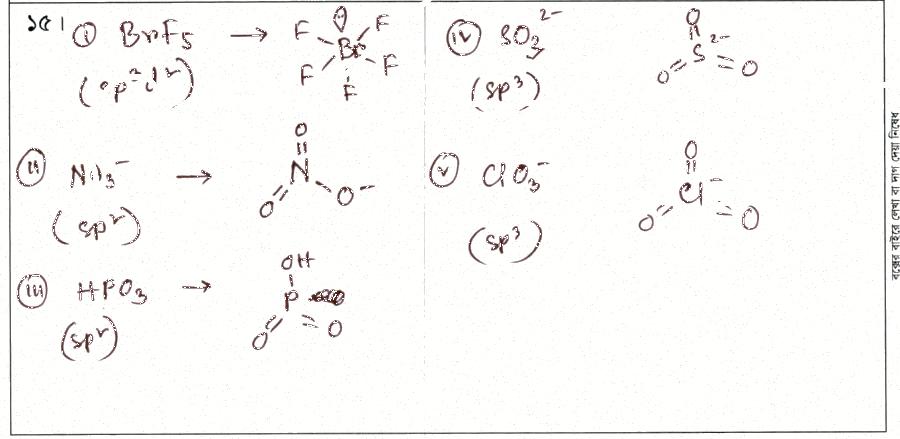 ১৫। (i) BrF₅ → F Br F F F F
(sp³d²)
(ii) NO₃⁻ → O N O O⁻
(sp²)
(iii) HPO₃ → OH P O O
(sp²)
(iv) SO₃²⁻ O S²⁻ O O
(sp³)
(v) ClO₃⁻ O Cl⁻ O O
(sp³)
বক্সের বাইরে লেখা বা দাগ দেয়া নিষেধ